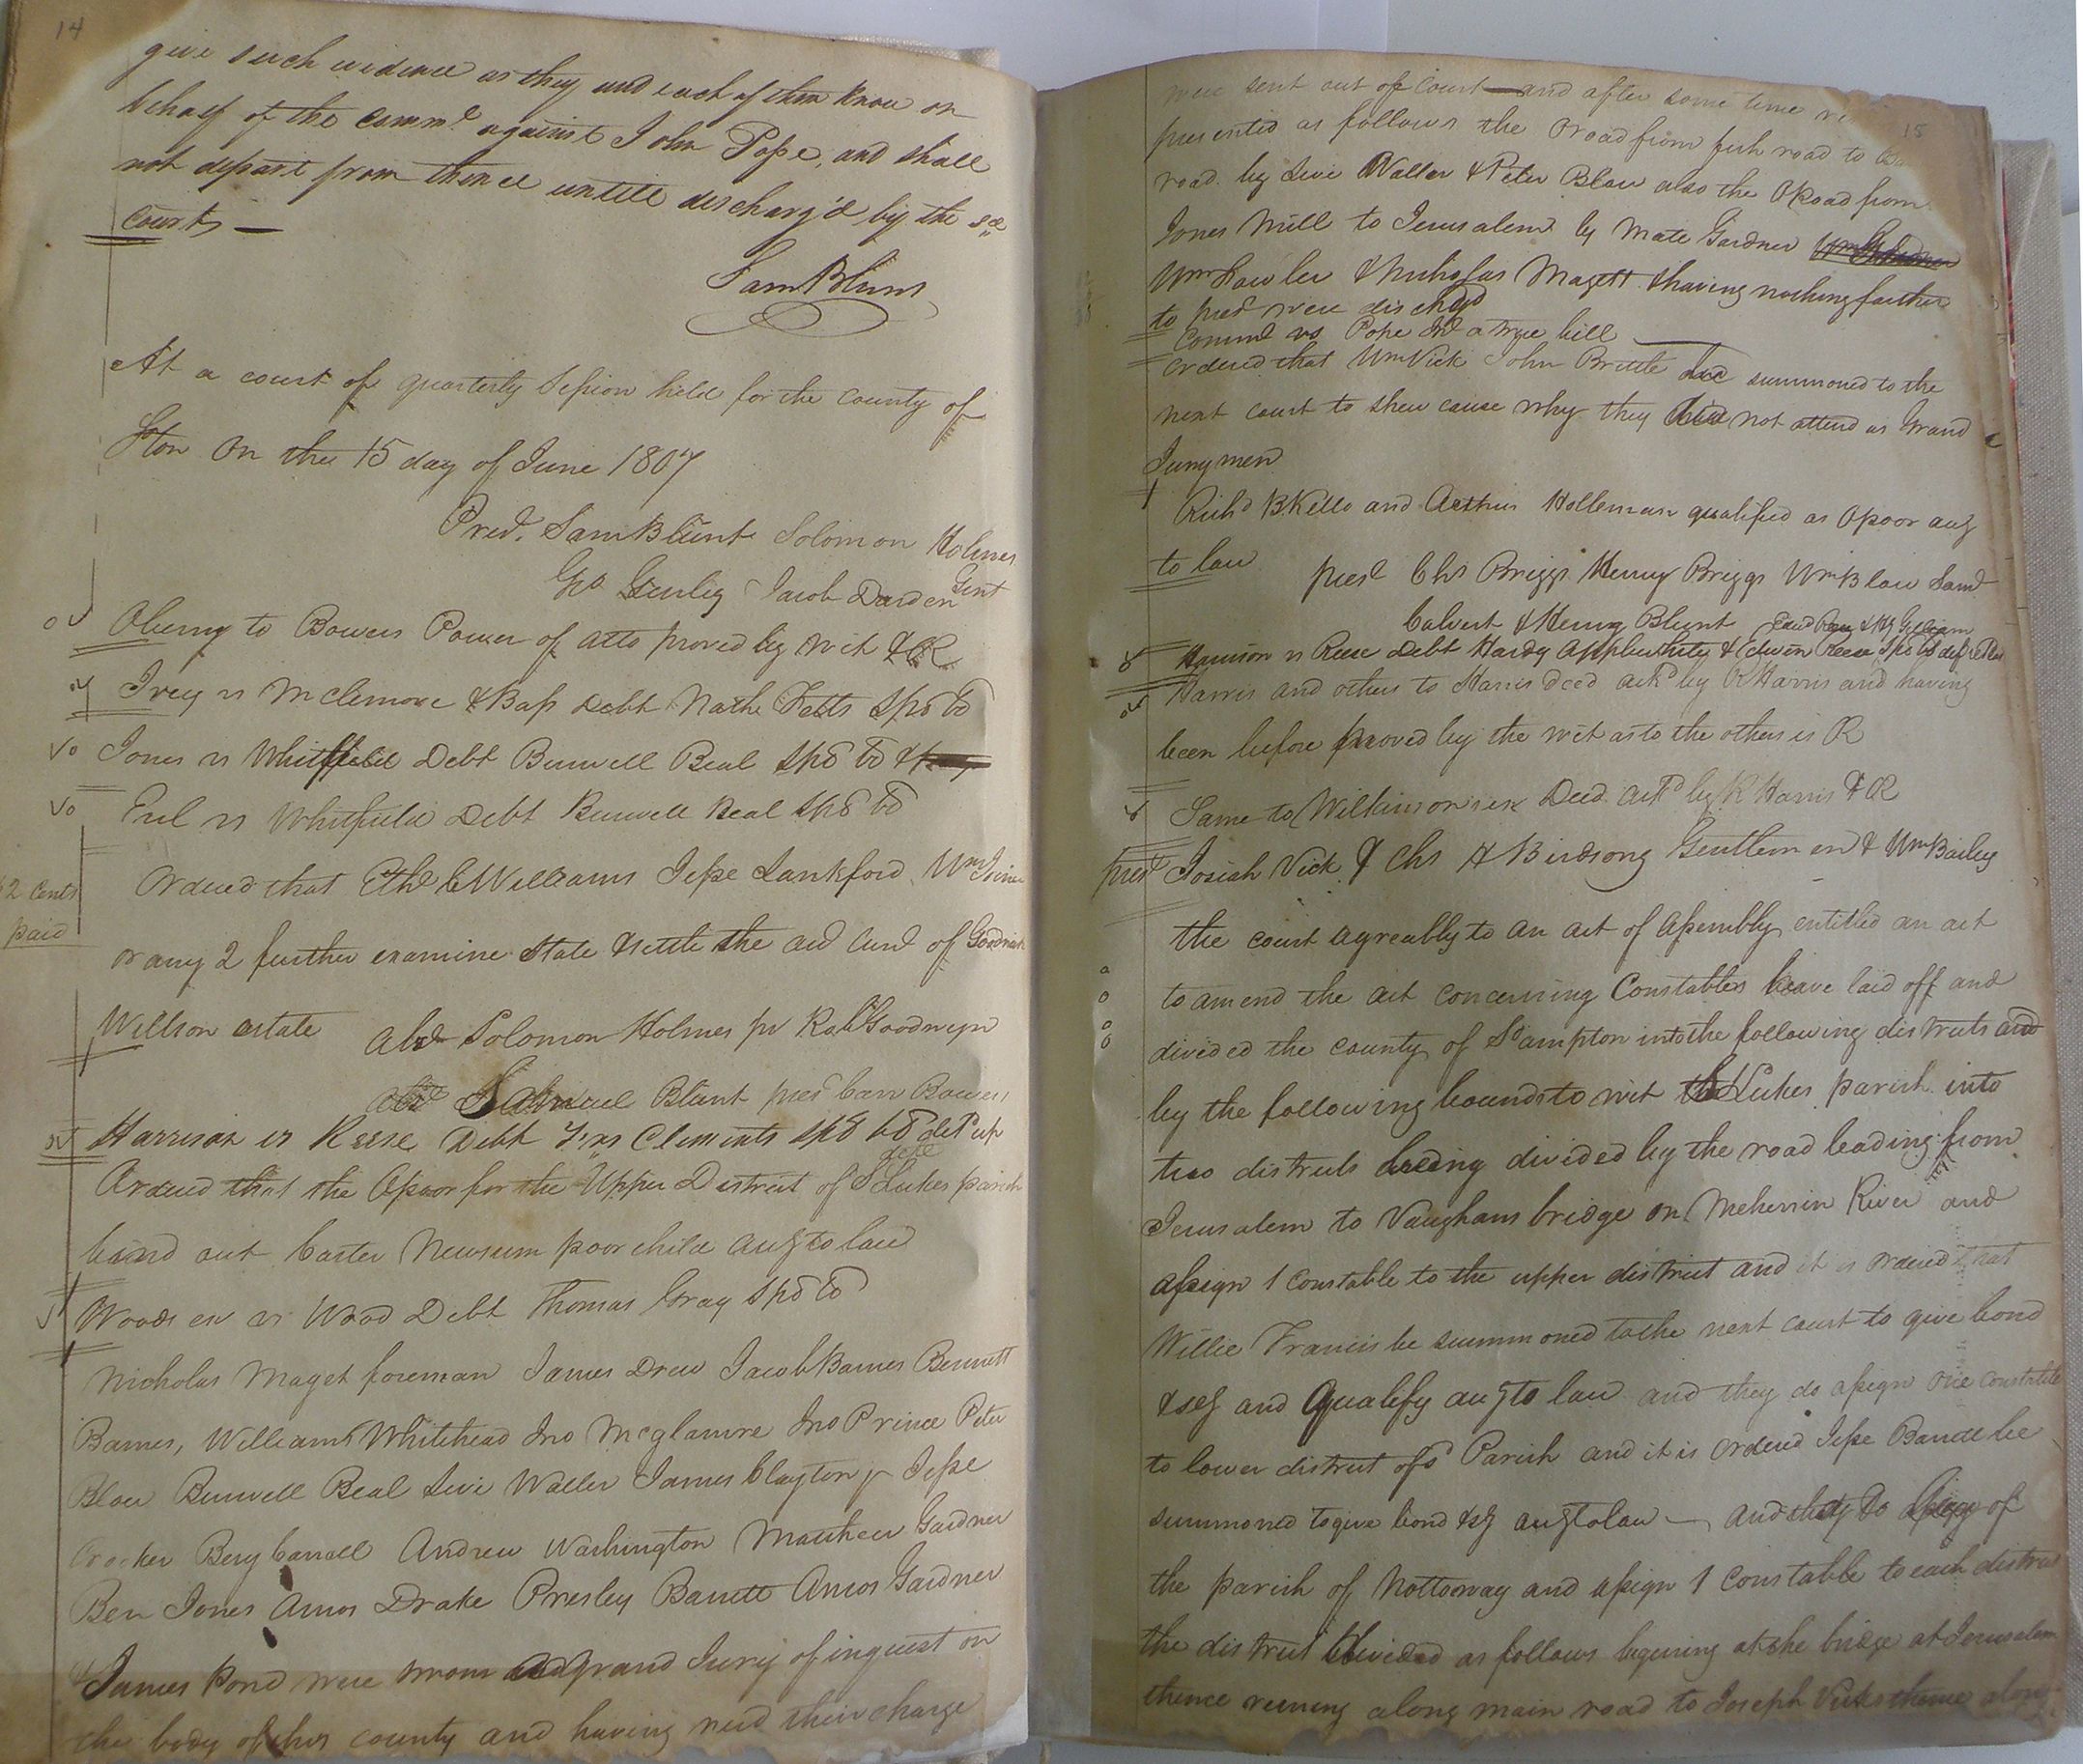 14
give such evidence as they and each of them know on
behalf of the Commd. against John Pope, and shall
not depart from thence untill discharg'd by the sd
Courts —
Sam Blunt
At a court of quarterly Session held for the county of
Ston On the 15 day of June 1807
Pred. Sam Blunt Solomon Holmes
Geo Gurley Jacob Darden Gent
Oberry to Bowers Power of atto proved by wit & R
Ivey vs Mclemore & Bass Debt Nathl Fetts Spd bd
Vo Jones vs Whitfield Debt Burwell Beal Spd bd
Vo Pul vs Whitfield Debt Burwell Beal Spd bd
Ordered that Ethd C Williams Jesse Lankford, Wm
62 Cents
paid
or any 2 further examine State & settle the aud Curd of
Willson estate abd Solomon Holmes pr Robt Goodwyn
abd Samuel Blunt pred Carr Bowers
Harrison vs Reese Debt Clements Spd bd
Ordered that the Opoor for the Upper District of St Lukes parish
bind out Carter Newsum poor child augto law
Woods en vs Wood Debt Thomas Gray Spd bd
Nicholas Maget foreman James Drew Jacob Barnes Bennett
Barnes, William Whitehead Jno Mcglamre Jno Prince Peter
Blow Burwell Beal Livi Waller James Clayton jr Jesse
Crocker Benj Carrell Andrew Washington Matthew Gardner
Ben Jones Amos Drake Presley Barrett Amos Gardner
& James Pond were sworn a Grand Jury of inquest on
the body of this county and having recd their charge
15
were sent out of Court — and after some time
presented as follows the Oroad from fish road to
road by Livi Waller & Peter Blow also the Oroad from
Jones Mill to Jerusalem by Mate Gardner
Wm Fowler & Nicholas Magett & having nothing farther
to presd were dischgd
Commd vs Pope Ind a true bill
Ordered that Wm Vick John Brittle be summoned to the
next court to shew cause why they did not attend as Grand
Jurymen
Richd B Kello and Arthur Holleman qualified as Opoor aug
to law presd Chs Briggs Henry Briggs Wm Blow Saml
Calvert & Henry Blunt
Harrison vs Reese Debt Hardy Applewhite & Edwin Reese Spd bd
Harris and others to Harris Deed ackd by R Harris and having
been before proved by the wit as to the others is R
Same to Wilkinson Deed ackd by R Harris & R
presd Josiah Vick & Chs H Birdsong Gentlemen & Wm Bailey
the court agreeably to an act of Assembly entitled an act
to amend the act concerning Constables have laid off and
divided the county of So ampton into the following districts and
by the following bounds to wit St Lukes parish into
two districts being divided by the road leading from
Jerusalem to Vaughans bridge on Meherrin River and
assign 1 Constable to the upper district and it is ordered that
Willie Francis be summoned to the next court to give bond
& sey and Qualify augto law and they do assign one constable
to lower district of sd Parish and it is ordered Jesse Barrett be
summoned to give bond & sy augto law — and they do of
the parish of Nottoway and assign 1 Constable to each district
the district divided as follows begining at the bridge at Jerusalem
thence runing along main road to Joseph Vicks thence along